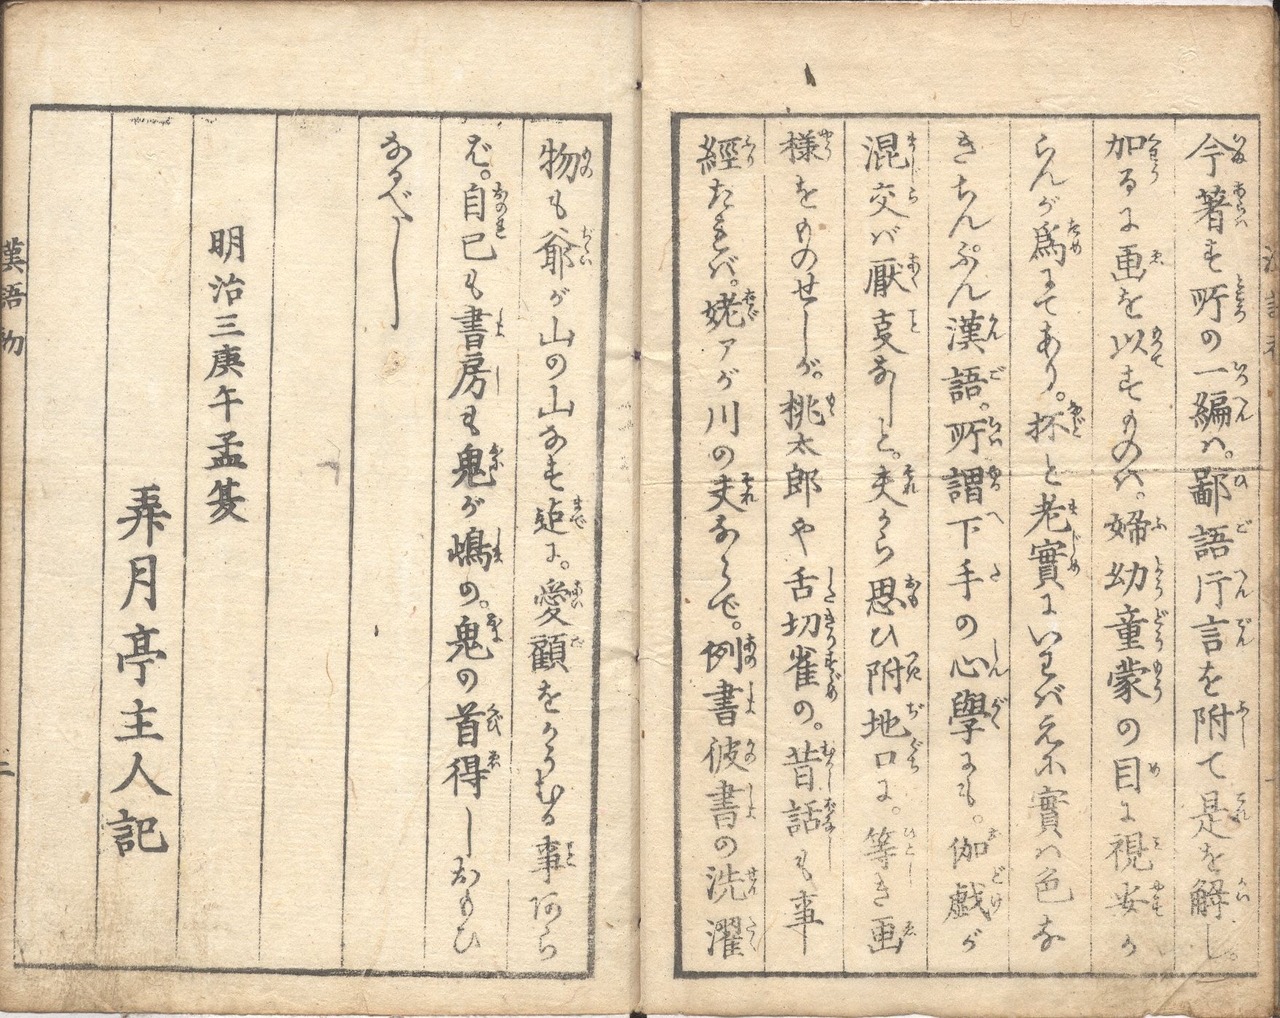 今著す所の一編ハ。鄙語片言を附て是を解し。
加るに画を以すものハ。婦幼童蒙の目に視安か
らんが為にてあり。抔と老實にいへバ
實ハ色な
きちんぷん漢語。所謂下手の心學にも。伽戯が
混交バ厭夏なしと。夫から思ひ附地口に。等き画
様をものせしが。桃太郎や舌切雀の。昔話も事
經たれバ。姥アが川の夫ならで。例書彼書の洗濯
物も爺が山の山なす迠に。愛顧をかうむる事あら
ば。自己も書房も鬼が嶋の。鬼の首得しおもひ
なるべし
明治三庚午孟夏
弄月亭主人記
漢語
二